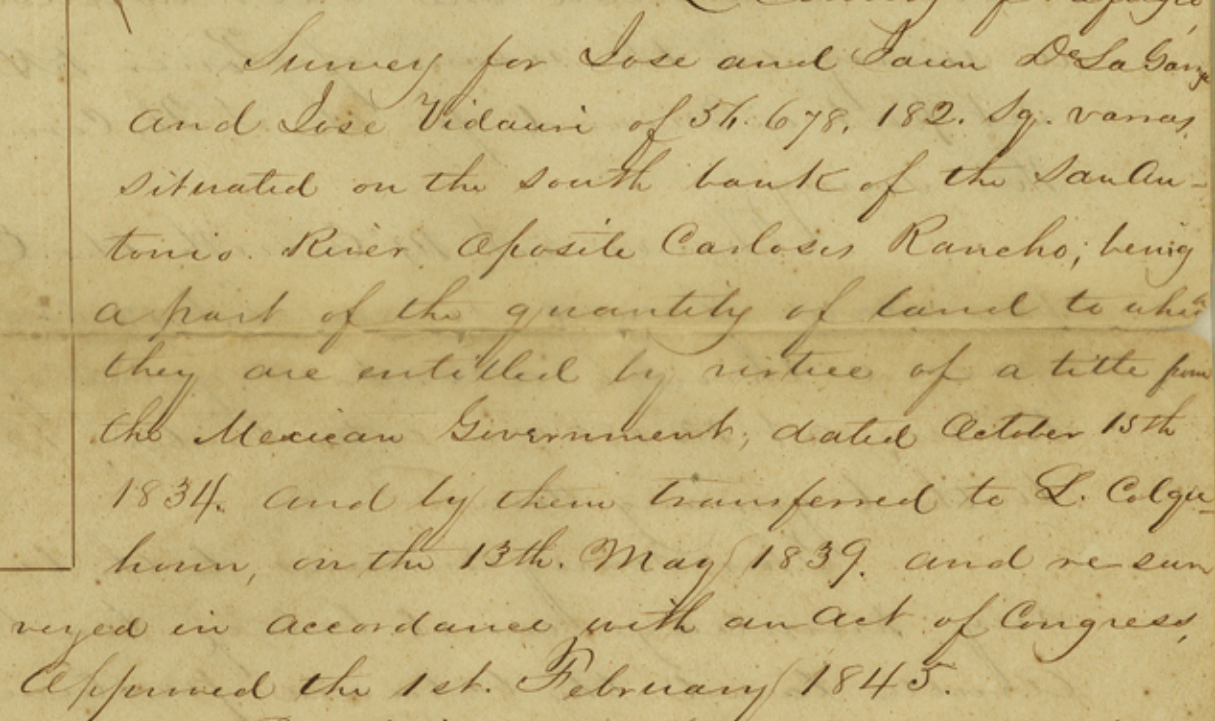 Survey for Jose and Juan De La Garza
and Jose Vidauri of 56.678,182. Sq. varras,
situated on the south bank of the San An-
tonio River. Oposite Carloses Rancho; being
a part of the quantity of land to which
they are entitled by virtue of a title from
the Mexican Government, dated October 15th
1834. and by them transferred to L. Colqu-
houn, on the 13th. May 1839. and re sur
veyed in accordance with an act of Congress,
Approved the 1st. February 1845.